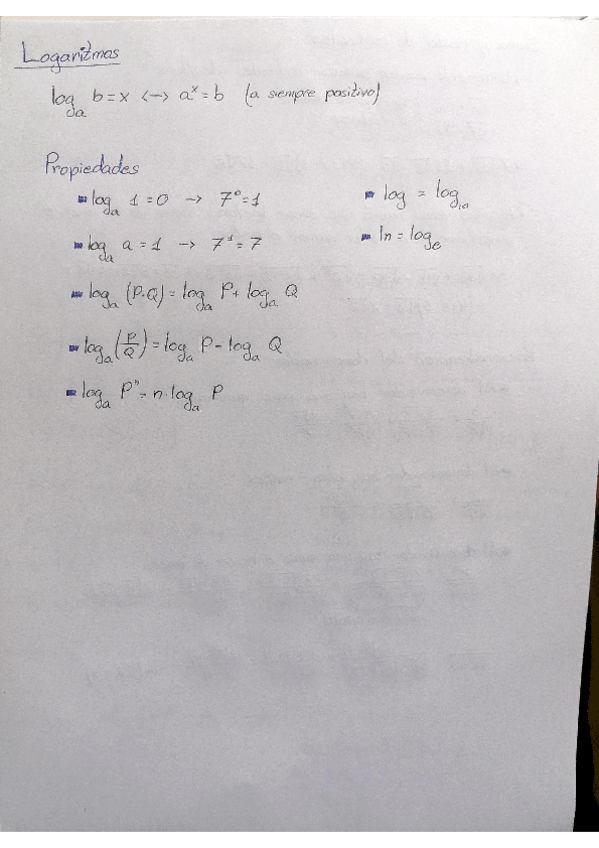 Logaritmos
logₐ b = x <-> aˣ = b (a siempre positivo)
Propiedades
logₐ 1 = 0 -> 7⁰ = 1
logₐ a = 1 -> 7¹ = 7
logₐ (P·Q) = logₐ P + logₐ Q
logₐ (P/Q) = logₐ P - logₐ Q
logₐ Pⁿ = n·logₐ P
log = log₁₀
ln = logₑ